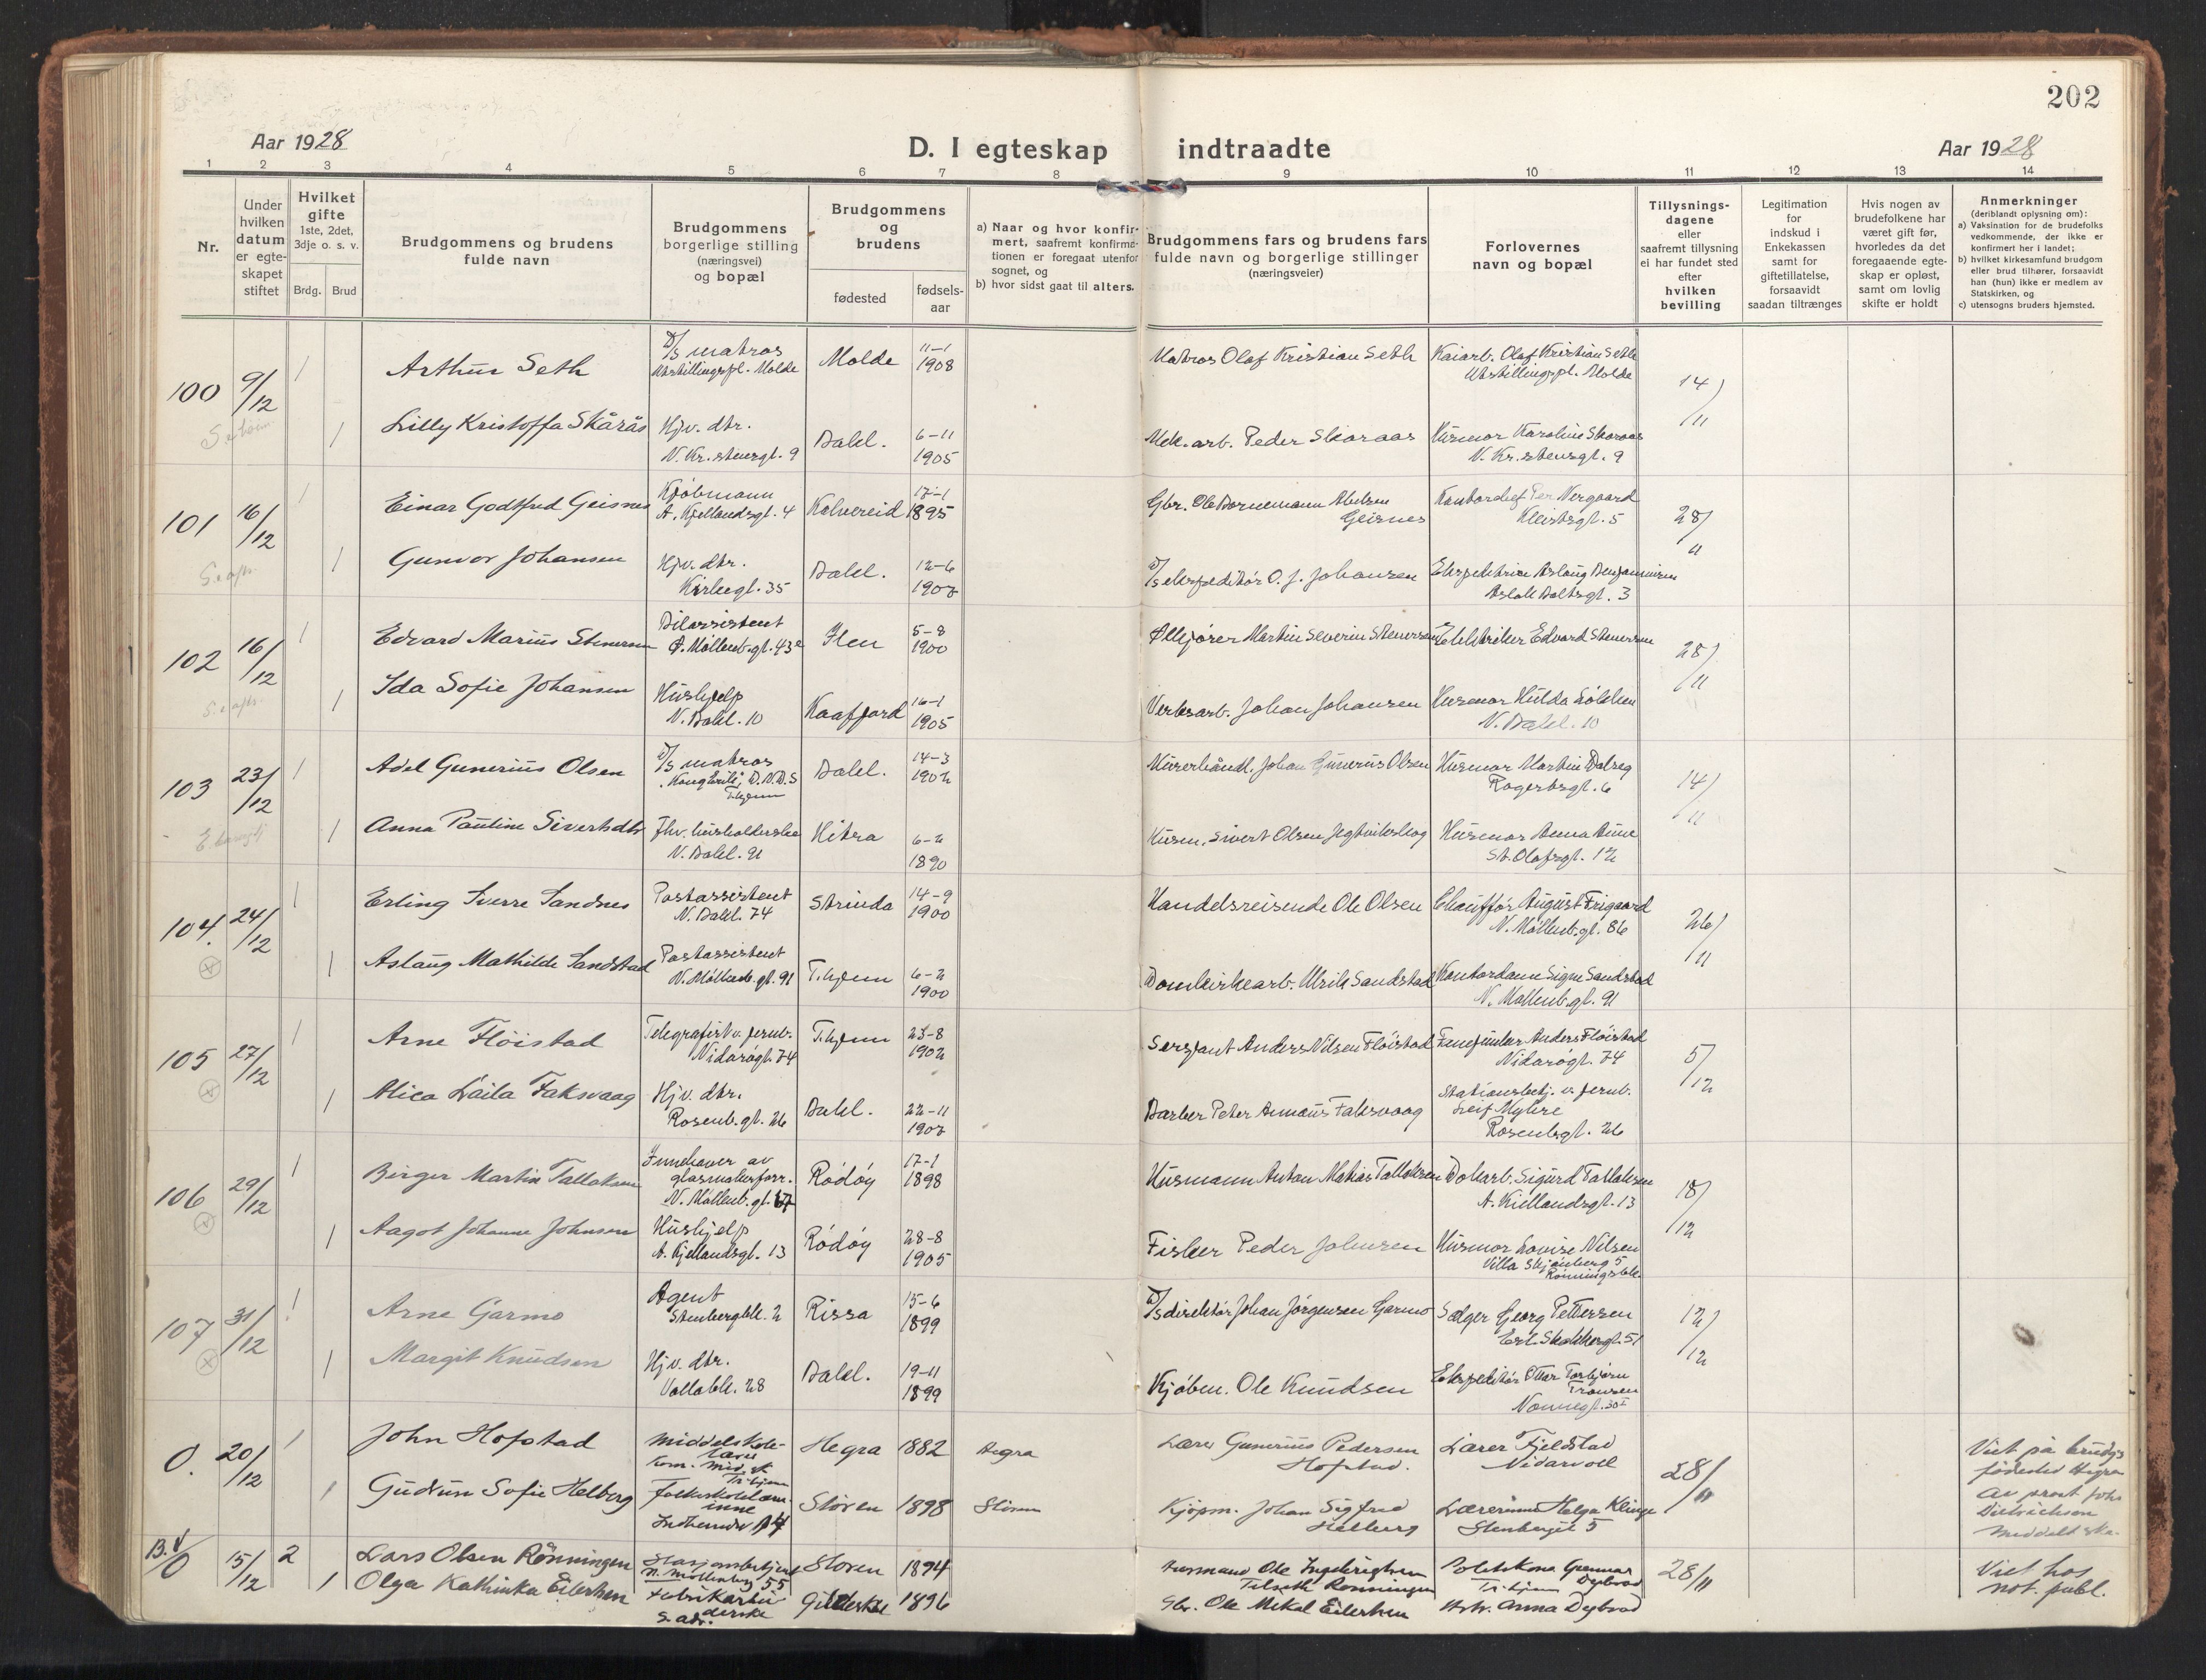 202
Aar 1928
D. I egteskap indtraadte
Aar 1928
1 2 3 4 5 6 7 8 9 10 11 12 13 14
Nr.
Under
hvilken
datum
er egte-
skapet
stiftet
Hvilket
gifte
1ste, 2det,
3dje o. s. v.
Brdg. Brud
Brudgommens og brudens
fulde navn
Brudgommens
borgerlige stilling
(næringsvei)
og bopæl
Brudgommens
og
brudens
fødested
fødsels-
aar
a) Naar og hvor konfir-
mert, saafremt konfirma-
tionen er foregaat utenfor
sognet, og
b) hvor sidst gaat til alters.
Brudgommens fars og brudens fars
fulde navn og borgerlige stillinger
(næringsveier)
Forlovernes
navn og bopæl
Tillysnings-
dagene
eller
saafremt tillysning
ei har fundet sted
efter
hvilken
bevilling
Legitimation
for
indskud i
Enkekassen
samt for
giftetillatelse,
forsaavidt
saadan tiltrænges
Hvis nogen av
brudefolkene har
været gift før,
hvorledes da det
foregaaende egte-
skap er opløst,
samt om lovlig
skifte er holdt
Anmerkninger
(deriblandt oplysning om):
a) Vaksination for de brudefolks
vedkommende, der ikke er
konfirmert her i landet;
b) hvilket kirkesamfund brudgom
eller brud tilhører, forsaavidt
han (hun) ikke er medlem av
Statskirken, og
c) utensogns bruders hjemsted.
100 9/12 1 Arthur Seth D/S matros Molde 11-1 1908 Matros Olaf Kristian Seth Kaiarb. Olaf Kristian Seth 14/11
Utstillingspl. Molde
Utstillingspl. Molde
1 Lilly Kristoffa Skårås Hjv. dtr. Bakl. 6-11 1905 Mek. arb. Peder Skoraas Husmor Karoline Skoraas
N. Kr.stensgt. 9
N. Kr.stensgt. 9
101 16/12 1 Einar Godtfred Geisnes Kjøbmann Kolvereid 17-1 1895 Gbr. Ole Bornemann Abelsen Kontorchef Per Vergaard 28/11
A. Kjellandsgt. 4
Geisnes
Kleistsgt. 5
1 Gunvor Johansen Hjv. dtr. Bakl. 12-6 D/S ekspeditør O. J. Johansen Ekspeditrise Aslaug Benjaminsen
Kirkegt. 35
Aslak Boltsgt. 3
102 16/12 1 Edvard Marius Stenersen Bilassistent Ilen 5-8 1900 Ølkjører Martin Severin Stenersen Elektriker Edvard Stenersen 28/11
Ø. Møllenb.gt. 43
1 Ida Sofie Johansen Hushjelp Kaafjord 16-1 1905 Verksarb. Johan Johansen Husmor Hulda Løkken
N. Bakl. 10
N. Bakl. 10
103 23/12 1 Adel Gunerius Olsen D/S matros Bakl. 14-3 1902 Johan Gunerius Olsen Husmor Martin Dalseg 14/11
D.N.D.S
T.hjem
Rogertsgt. 6
1 Anna Pauline Sivertsdtr Fhv. husholderske Hitra 6-2 1890 Husm. Sivert Olsen Husmor Anna Aune
N. Bakl. 91
St. Olafsgt. 12
104. 24/12 1 Erling Sverre Sandnes Postassistent Strinda 14-9 1900 Handelsreisende Ole Olsen Chauffør August Frigaard 26/11
N. Bakl. 74
N. Møllenb.gt. 86
1 Aslaug Mathilde Sandstad Postassistent T.hjem 6-2 1900 Domkirkearb. Ulrik Sandstad Kontordame Signe Sandstad
N. Møllenb.gt. 91
N. Møllenb.gt. 91
105 27/12 1 Arne Fløistad Telegrafist v. jernb. T.hjem 23-8 1902 Sersjant Anders Nilsen Fløistad Fanejunker Anders Fløistad 5/12
Nidarøgt. 74
Nidarøgt. 74
1 Alica Laila Faksvaag Hjv. dtr. Bakl. 22-11 Barber Peter Faksvaag Stationsbetj. v. jernb.
Leif Myhre
Rosenb.gt. 26
Rosenb.gt. 26
106 29/12 1 Birger Martin Tallaksen Innehaver av Rødøy 17-1 1898 Husmann Anton Matias Tallaksen Dokarb. Sigurd Tallaksen 18/12
glasmakerforr.
N. Møllenb.gt. 67
A. Kiellandsgt. 13
1 Aagot Johanne Johnsen Hushjelp Rødøy 28-8 1905 Fisker Peder Johnsen Husmor Lovise Nilsen
A. Kjellandsgt. 13
Villa Skjønberg 5
Rønningsbk.
107 31/12 1 Arne Garmo Agent Rissa 15-6 1899 D/S direktør Johan Jørgensen Garmo Selger Georg Pettersen 12/12
Stenbergbk. 2
Erl. Skakkesgt. 51
1 Margit Knudsen Hjv. dtr. Bakl. 19-11 1899 Kjøbm. Ole Knudsen Ekspeditør Ottar Torbjørn
Vollabk. 28
Tronsen
Nonnegt. 30 I
0. 20/12 1 John Hofstad Middelskole- Hegra 1882 Hegra Lærer Gunerius Pedersen Lærer Fjeldstad 28/11 Viet på brudgs
lærer
Hofstad.
Nidarvoll
fødested Hegra
av prost Johs
1 Gudrun Sofie Helberg Folkeskolelærer- Støren 1898 Støren Kjøpm. Johan Sigfred Lærerinne Helga Klinge
inne
Helberg
Stenberget 5
B.V 0 15/12 2 Lars Olsen Rønningen Stasjonsbetjent Støren 1894 Husmand Ole Ingebrigtsen 28/11 Viet hos
N. Møllenberg 55
Rønningen
Dybvad
not. publ.
1 Olga Kathinka Eilertsen Fabrikarbei- Gildeskål 1896 Gbr. Ole Mikal Eilertsen Anna Dybvad
derske
S. adr.